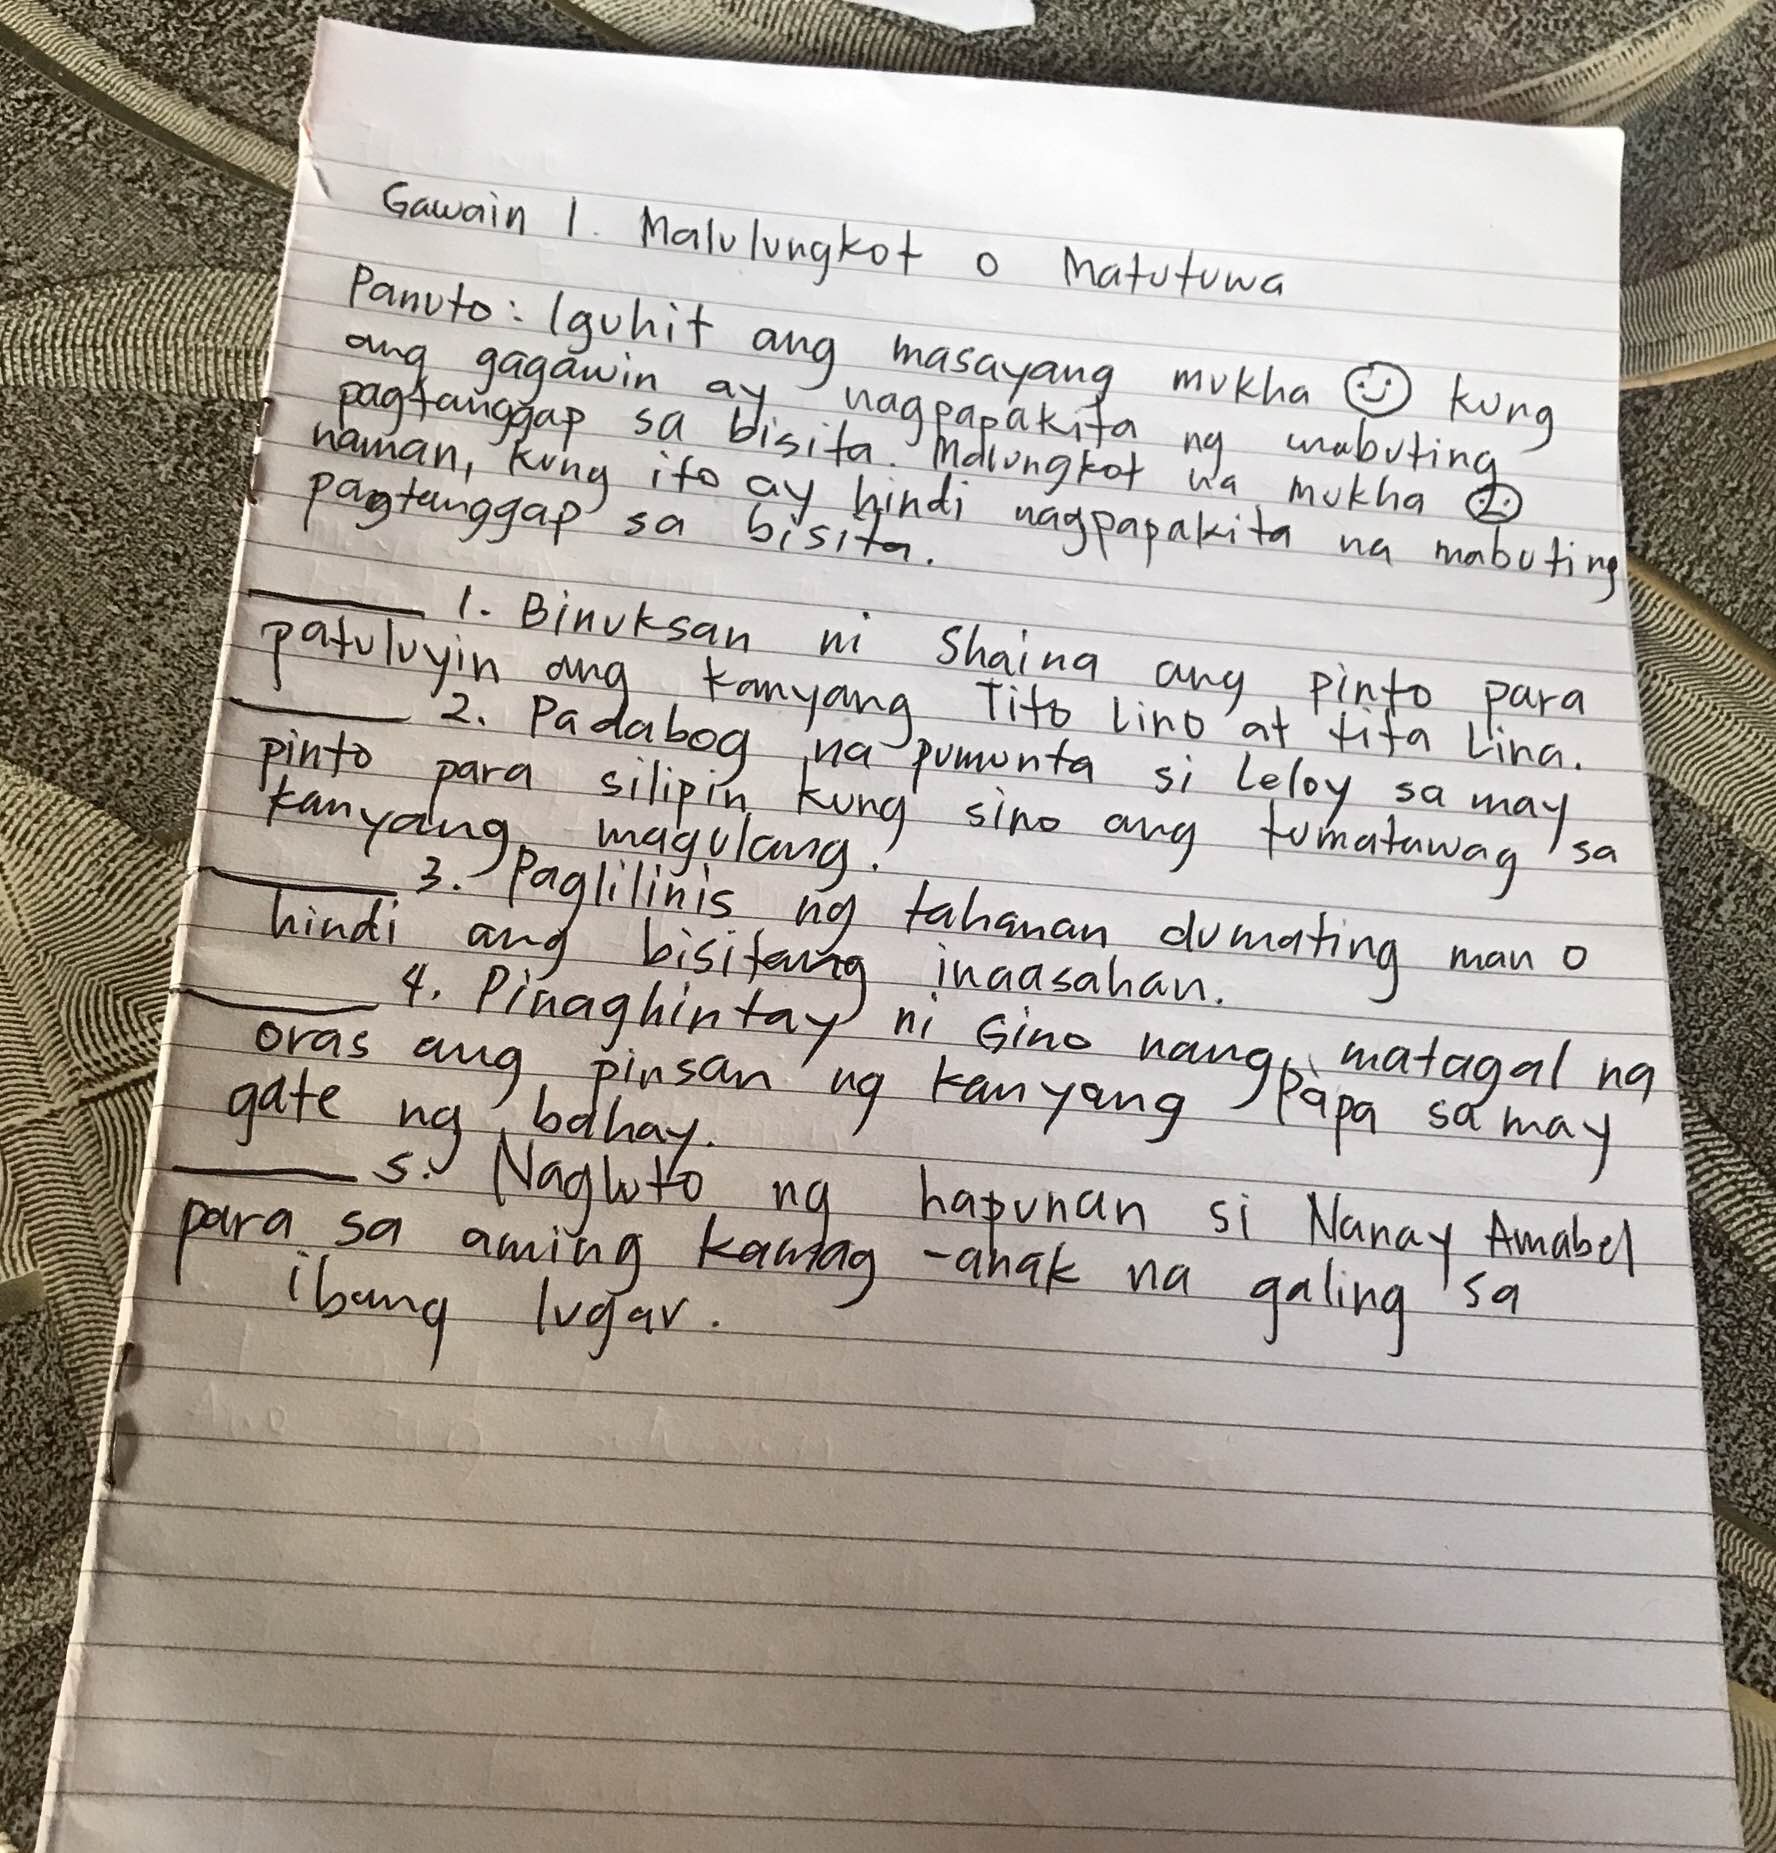 Gawain 1. Malulungkot o Matutuwa
Panuto: Iguhit ang masayang mukha ☺ kung
ang gagawin ay nagpapakita ng mabuting
pagtanggap sa bisita. Malungkot na mukha ☹
naman, kung ito ay hindi nagpapakita na mabuting
pagtanggap sa bisita.
______ 1. Binuksan ni Shaina ang pinto para
patuluyin ang kanyang Tito Lino at tita Lina.
______ 2. Padabog na pumunta si Leloy sa may
pinto para silipin kung sino ang tumatawag sa
kanyang magulang.
______ 3. Paglilinis ng tahanan dumating man o
hindi ang bisitang inaasahan.
______ 4. Pinaghintay ni Gino nang matagal na
oras ang pinsan ng kanyang Papa sa may
gate ng bahay.
______ 5. Nagluto ng hapunan si Nanay Amabel
para sa aming kamag-anak na galing sa
ibang lugar.